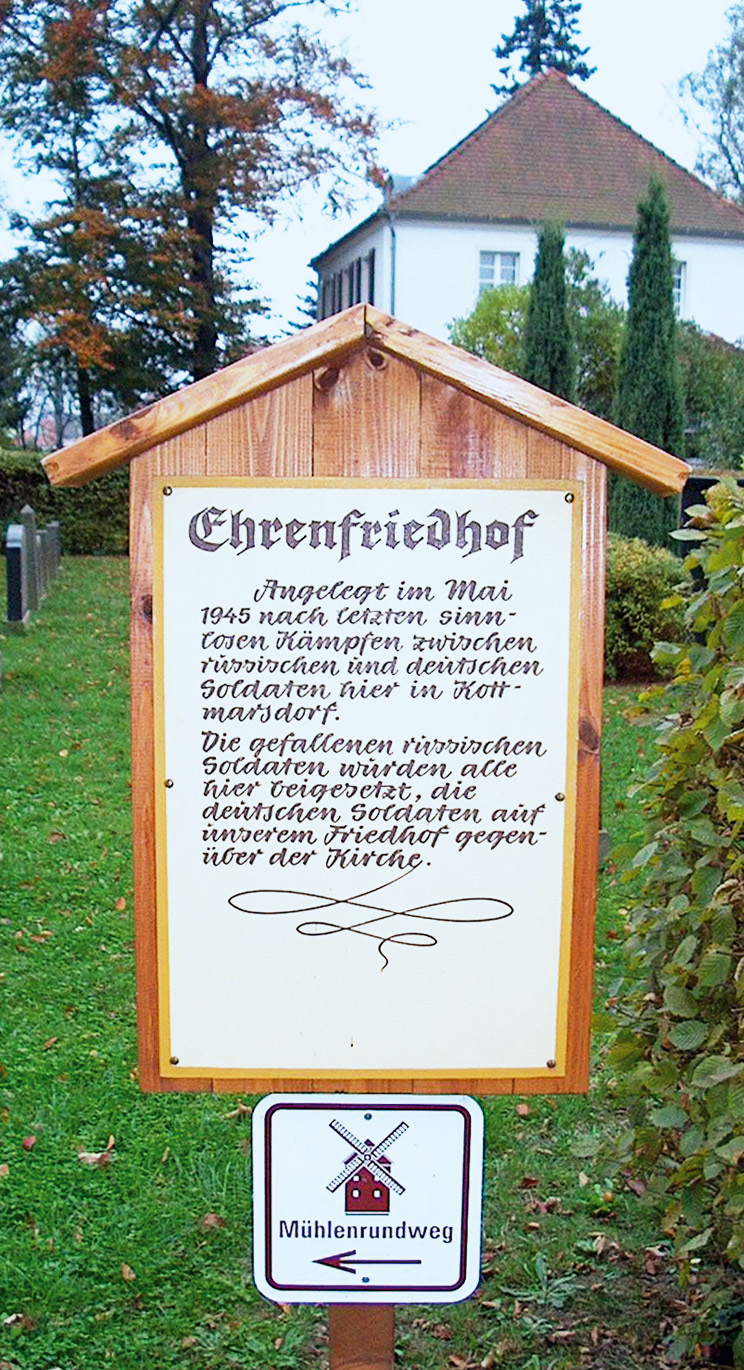 Ehrenfriedhof
Angelegt im Mai
1945 nach letzten sinn-
losen Kämpfen zwischen
russischen und deutschen
Soldaten hier in Kott-
marsdorf.
Die gefallenen russischen
Soldaten wurden alle
hier beigesetzt, die
deutschen Soldaten auf
unserem Friedhof gegen-
über der Kirche.
Mühlenrundweg